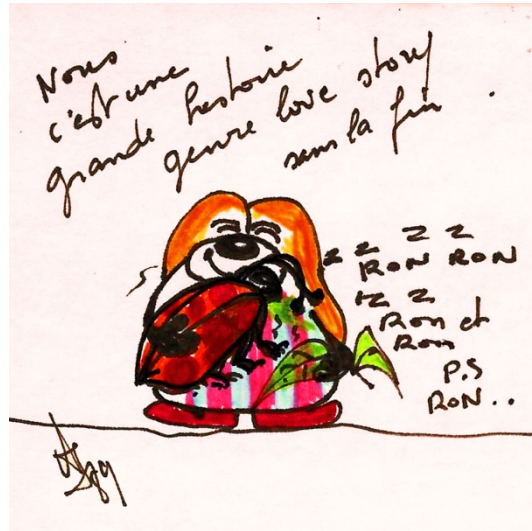 Nous
c'est une
grande histoire
genre love story
sans la fin.
z z z z
RON RON
z z
Ron et
Ron
P.S
RON..